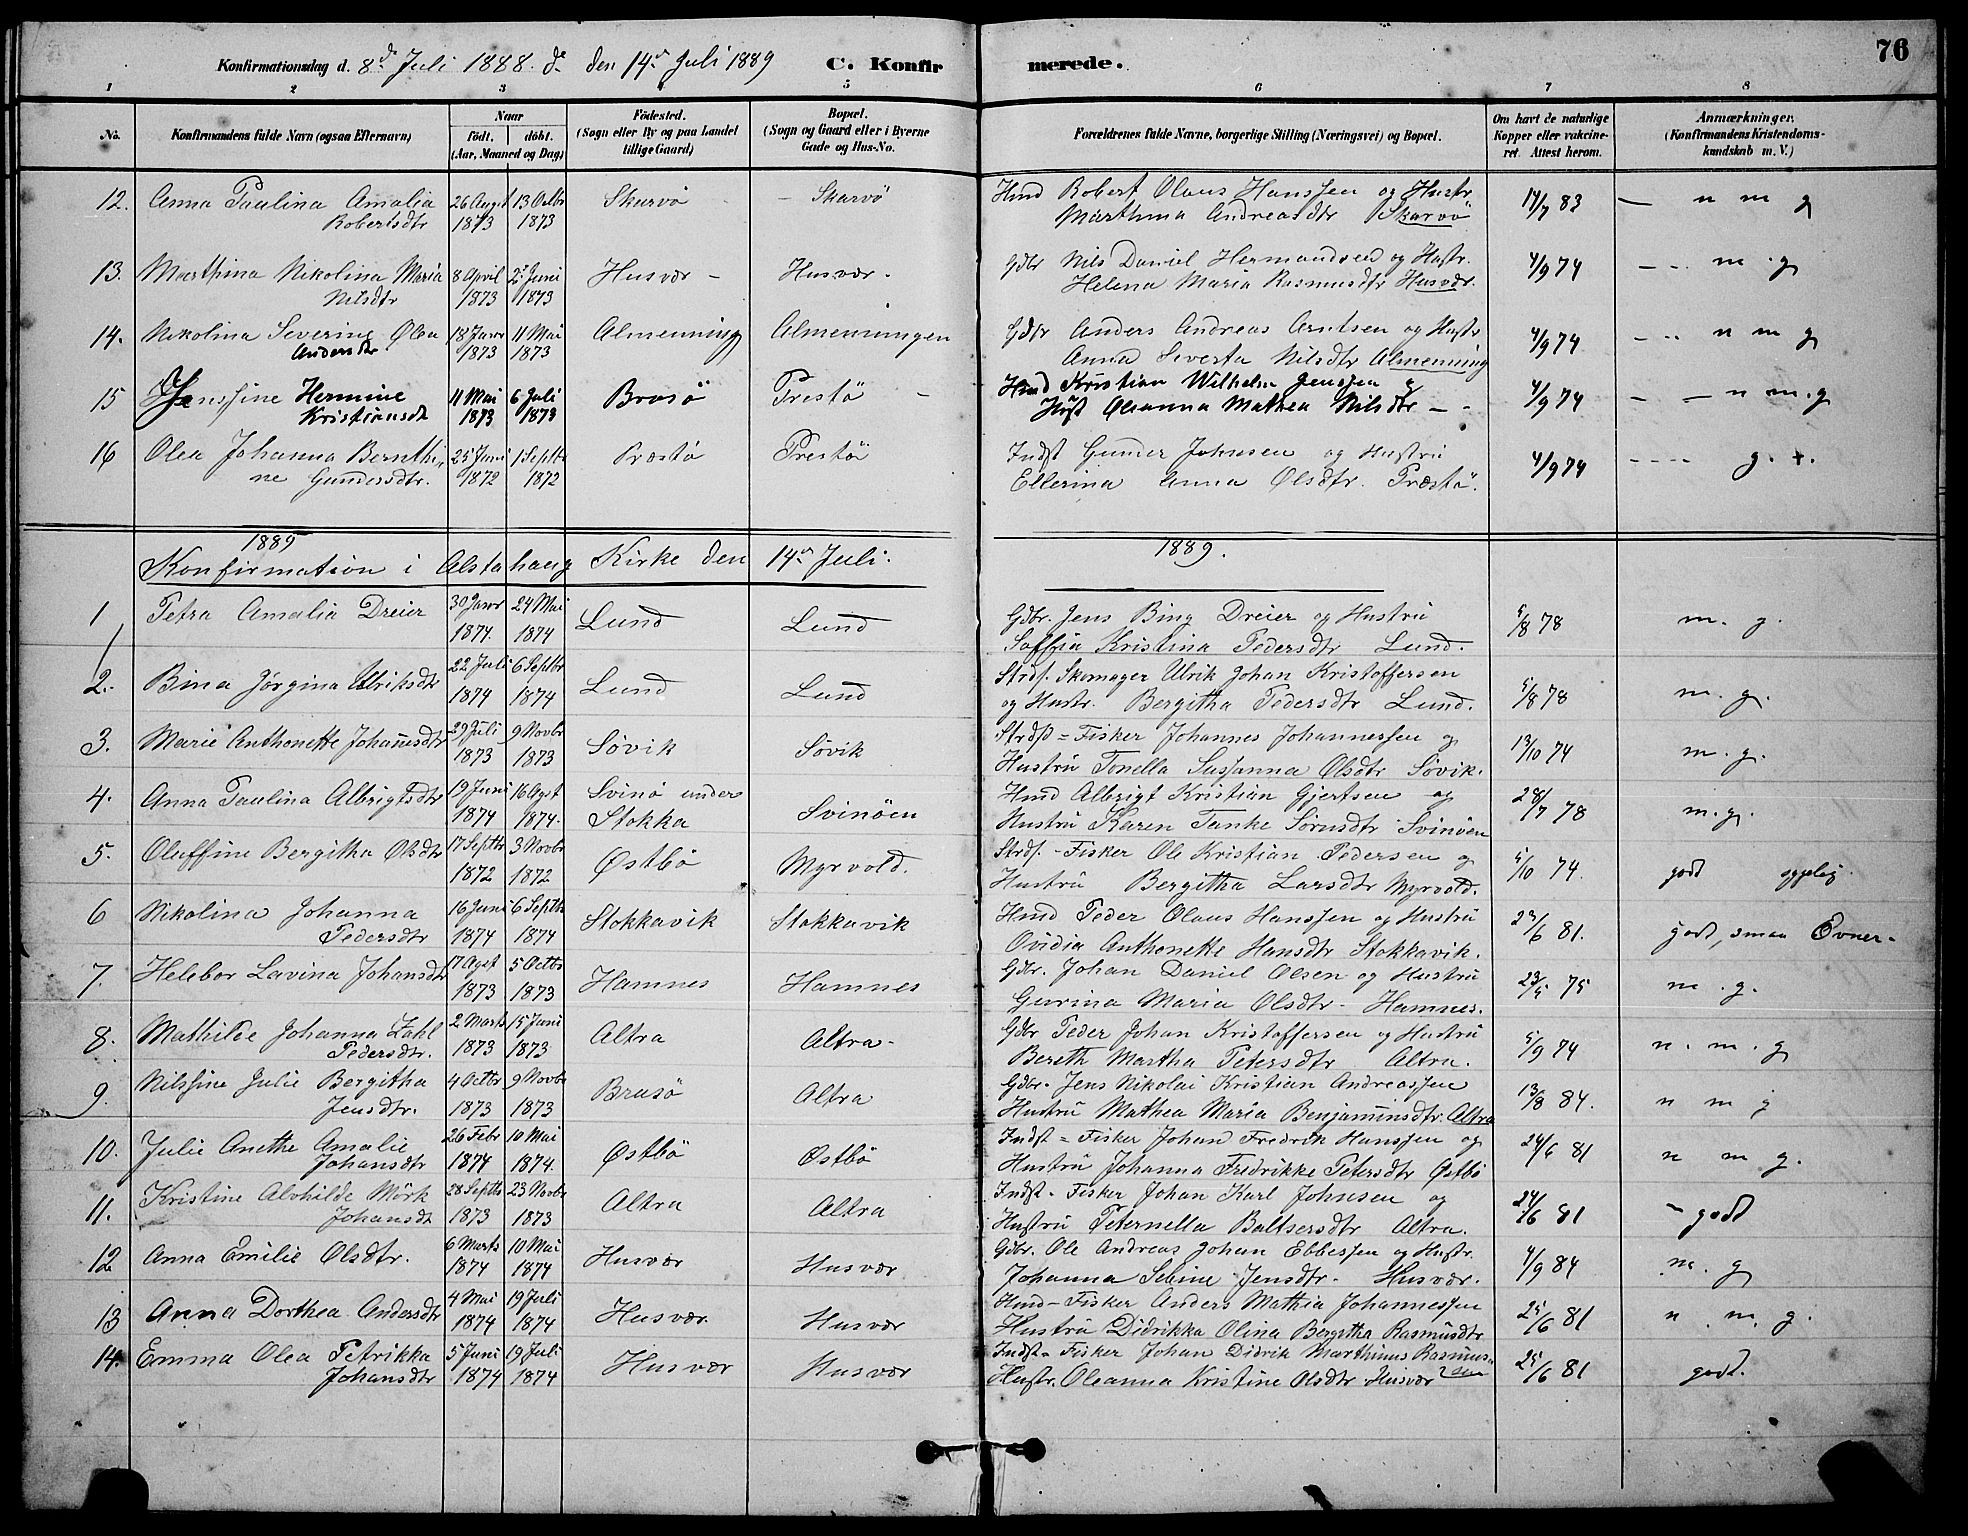 76
Konfirmationsdag d. 8de Juli 1888. d. den 14de Juli 1889 C. Konfirmerede.
1 2 3 4 5 6 7 8
No. Konfirmandens fulde Navn (ogsaa Efternavn) Naar födt. döbt. (Aar, Maaned og Dag) Födested. (Sogn eller By og paa Landet tillige Gaard) Bopæl. (Sogn og Gaard eller i Byerne Gade og Hus-No. Forældrenes fulde Navne, borgerlige Stilling (Næringsvei) og Bopæl. Om havt de naturlige Kopper eller vakcineret. Attest herom. Anmærkninger. (Konfirmandens Kristendomskundskab m. V.)
12. Anna Paulina Amalia 26 Augst 13 Octbr Skarvö – Skarvö Hmd Robert Olaus Hanssen og Hustr. 14/7 83 — n m g
Robertsdtr 1873 1873 Marthina Andreasdtr Skarvö
13. Marthina Nikolina Maria 8 April 2 Juni Husvær – Husvær. Gdbr Nils Daniel Hermandsen og Hustr. 4/9 74 – – m. g
Nilsdtr 1873 1873 Helena Maria Rasmusdtr Husvær.
14. Nikolina Severine Olea 18 Janr 11 Mai Almenning Almenningen Gdbr Anders Andreas Arntsen og Hustr 4/9 74 – – n m g
Andersdtr 1873 1873 Anna Siverta Nilsdtr Almenning
15 Jenssine Hermine 11 Mai 6 Juli Brasö Prestö – Hmd Kristian Wilhelm Jenssen og 4/9 74 – – n m. g
Kristiansdt 1873 1873 Hust Oleanna Mathea Nilsdtr – –
16 Olea Johanna Bernthi- 25 Juni 1 Septbr Præstö Prestö Indst Gunder Johnsen og Hustru 4/9 74 – – – – g. +.
ne Gundersdtr. 1872 1872 Ellerina Anna Olsdtr. Præstö.
1889
Konfirmation i Alstahaug Kirke den 14de Juli. 1889.
1 Petra Amalia Dreier 30 Janr 24 Mai Lund Lund Gdbr. Jens Bing Dreier og Hustru 5/8 78 m. g.
1874. 1874 Soffia Kristina Pedersdtr Lund.
2. Bina Jørgina Ulriksdtr 22 Juli 6 Septbr Lund Lund Strds. Skomager Ulrik Johan Kristoffersen 5/8 78 m. g.
1874 1874 og Hustr. Bergitha Pedersdtr Lund.
3. Marie Anthonette Johannesdtr 29 Juli 9 Novbr Søvik Søvik Strdsd = Fisker Johannes Johannessen og 13/10 74 m. g.
1873 1873 Hustru Tonella Sussanna Olsdtr Søvik.
4. Anna Paulina Albrigtsdtr 19 Juni 16 Agst Svinö under Svinöen Hmd Albrigt Kristian Gjertsen og 28/7 78 m. g.
1874 1874. Stokka Hustru Karen Tanke Sørnsdtr Svinöen
5. Oluffine Bergitha Olsdtr 17 Septbr 3 Novbr Østbö Myrvold. Strds. – Fisker Ole Kristian Pedersen og 5/10 74. godt
1872 1872 Hustru Bergitha Larsdtr Myrvold.
6 Nikolina Johanna 16 Juni 6 Septbr Stokkavik Stokkavik Hmd Peder Olaus Hanssen og Hustru 23/6 81. godt, smaa Evner.
Pedersdtr 1874 1874 Ovidia Anthonette Hansdtr Stokkavik.
7. Helebor Lavina Johansdtr 17 Agst 5 Octbr Hamnes Hamnes Gdbr. Johan Daniel Olsen og Hustru 23/5 75 m. g.
1873 1873 Gurina Maria Olsdtr – Hamnes.
8. Mathilde Johanna Zahl 2 Marts 15 Juni Altra Altra. Gdbr Peder Johan Kristoffersen og Hustru 5/9 74 n. m. g
Pedersdtr. 1873 1873 Bereth Martha Petersdtr Altra.
9. Nilssine Julie Bergitha 4 Octbr 9 Novbr Brasö Altra Gdbr. Jens Nikolai Kristian Andreassen 13/8 84. n m g
Jensdtr. 1873 1873 Hustru Mathea Maria Benjaminsdtr. Altra
10. Julie Anethe Amalie 26 Febr 10 Mai Østbö Østbö Indst = Fisker Johan Fredrik Hanssen og 24/6 81 n m g.
Johansdtr 1874 1874. Hustru Johanna Fredrikke Petersdtr Østbö
11. Kristine Alvhilde Mörk 28 Septbr 23 Novbr Altra Altra Indst. Fisker Johan Karl Johnsen og 24/6 81 – godt
Johansdt 1873 1873 Hustru Peternella Baltsersdtr Altra.
12 Anna Emilie Olsdtr. 6 Marts 10 Mai Husvær Husvær Gdbr. Ole Andreas Johan Ebbessen og Hustr. 4/9 84 m. g
1874 1874 Johanna Sebine Jensdtr. Husvær.
13 Anna Dorthea Andersdtr 4 Mai 19 Juli Husvær Husvær Hmd – Fisker Anders Mathia Johannessen 25/6 81 n m g.
1874 1874 Hustru Didrikka Olina Bergitha Rasmusdtr
14. Emma Olea Petrikka 5 Juni 19 Juli Husvær Husvær Indst. Fisker Johan Didrik Marthinus Rasmus- 25/6 81 godt.
Johansdtr 1874 1874 Hustr. Oleanna Kristine Olsdtr Husvær sen